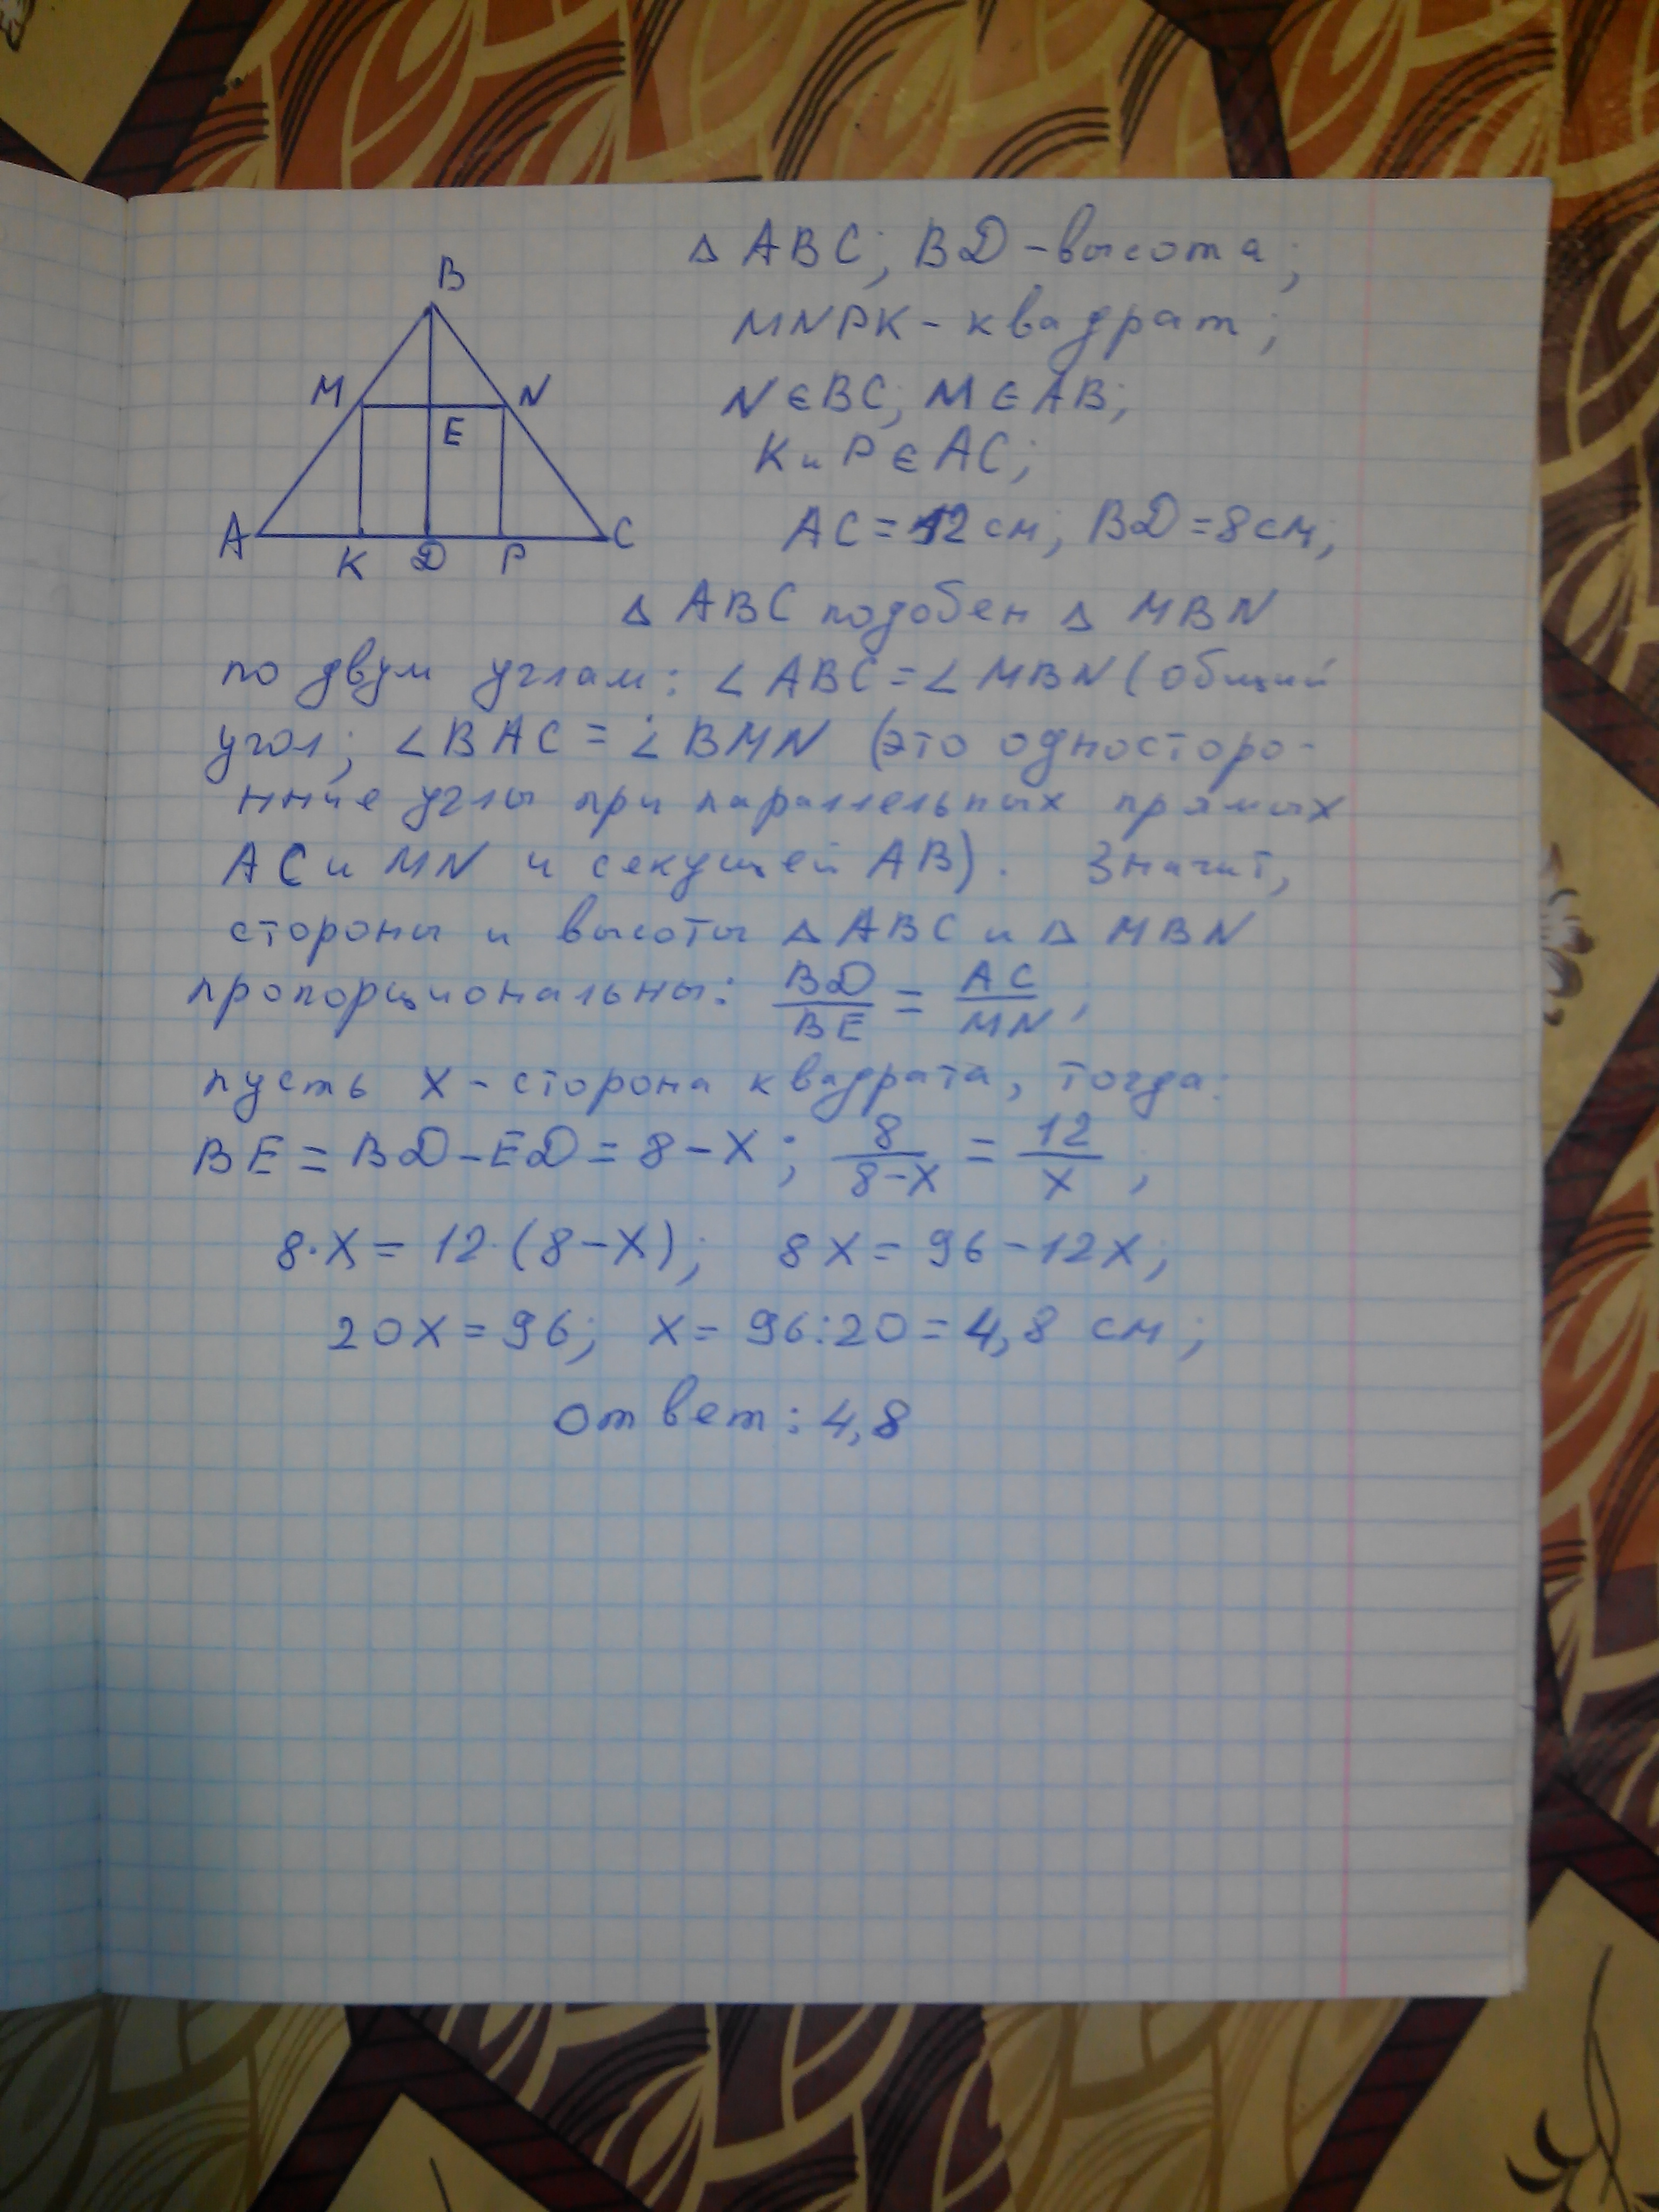 B
M
N
E
A
K
D
P
C
△ ABC; BD - высота;
MNPK - квадрат;
N ∈ BC; M ∈ AB;
K и P ∈ AC;
AC = 12 см; BD = 8 см;
△ ABC подобен △ MBN
по двум углам: ∠ ABC = ∠ MBN (общий
угол; ∠ BAC = ∠ BMN (это односторо-
нние углы при параллельных прямых
AC и MN и секущей AB). Значит,
стороны и высоты △ ABC и △ MBN
пропорциональны: BD/BE = AC/MN;
пусть x - сторона квадрата, тогда:
BE = BD - ED = 8 - x; 8/(8-x) = 12/x;
8·x = 12·(8-x); 8x = 96 - 12x;
20x = 96; x = 96:20 = 4,8 см;
ответ: 4,8